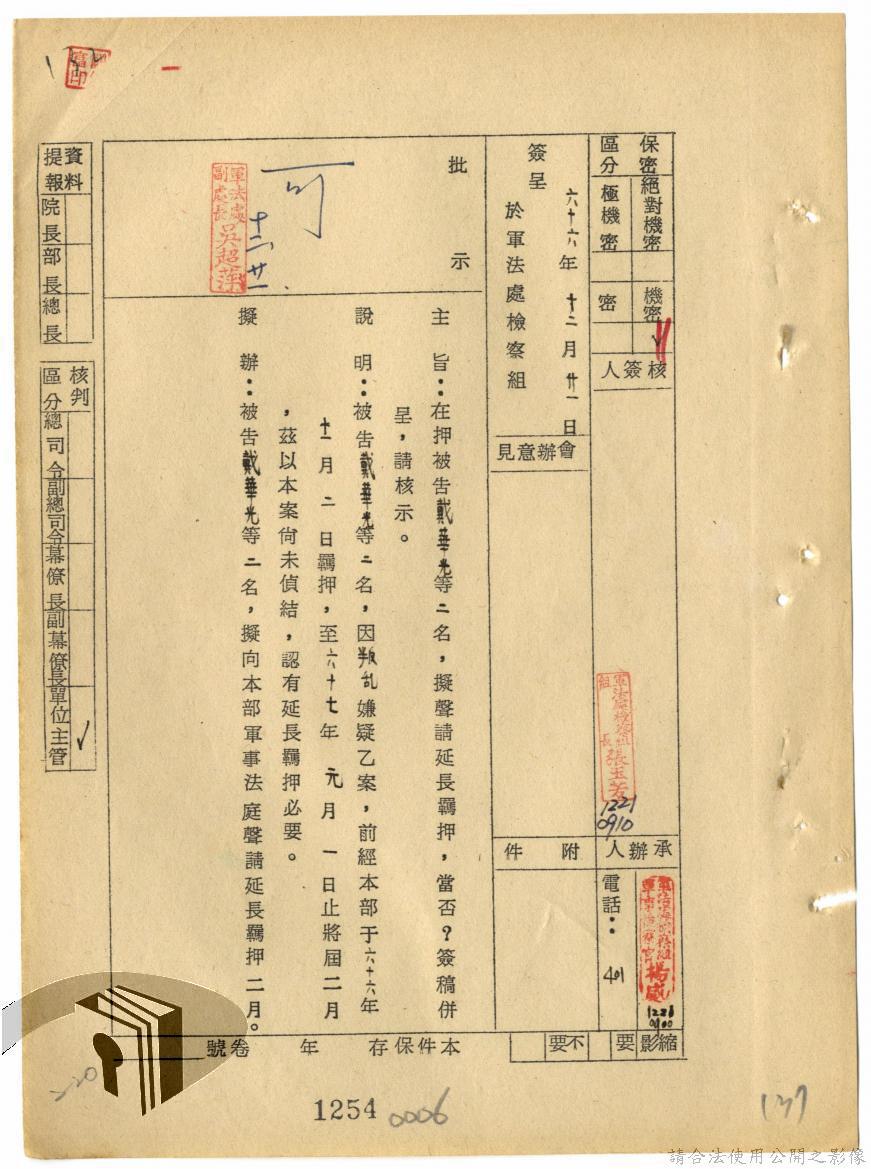 保密區分
絕對機密
極機密
機密 ✓
密
核簽人
軍法處檢察組
組長 張玉芳
1221
0910
承辦人
電話：401
1221
0900
縮影 要 不要
簽呈
六十六年十二月廿一日
於軍法處檢察組
會辦意見
附件
批示
可
軍法處副處長
十二、廿一
主旨：在押被告戴華光等二名，擬聲請延長羈押，當否？簽稿併
呈，請核示。
說明：被告戴華光等二名，因叛乱嫌疑乙案，前經本部于六十六年
十一月二日羈押，至六十七年元月一日止將屆二月
，茲以本案尚未偵結，認有延長羈押必要。
擬辦：被告戴華光等二名，擬向本部軍事法庭聲請延長羈押二月。
本件保存 年 卷號
資料提報
院長
部長
總長
核判區分
總司令
副總司令
幕僚長
副幕僚長
單位主管 ✓
1254
0006
137
請合法使用公開之影像